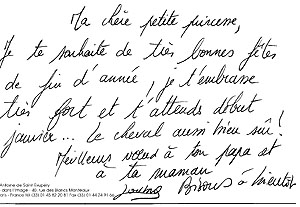 Ma chère petite princesse,
Je te souhaite de très bonnes fêtes
de fin d'année, je t'embrasse
très fort et t'attends début
janvier... le cheval aussi bien sûr!
Meilleurs vœux à ton papa et
à ta maman
Bisous à bientôt
Antoine de Saint Exupéry
dans l'image - 40, rue des Blancs Manteaux